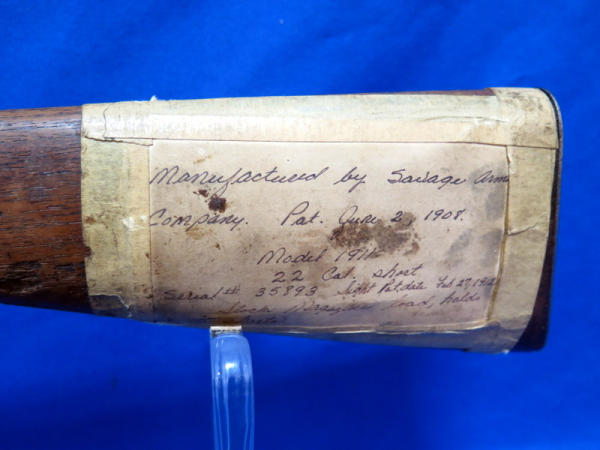 Manufactured by Savage Arms
Company. Pat. June 2, 1908.
Model 1911
22 Cal. short
Serial # 35893 sight Pat. date Feb 27, 1912
load, holds